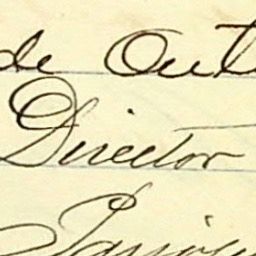 de Out
Director